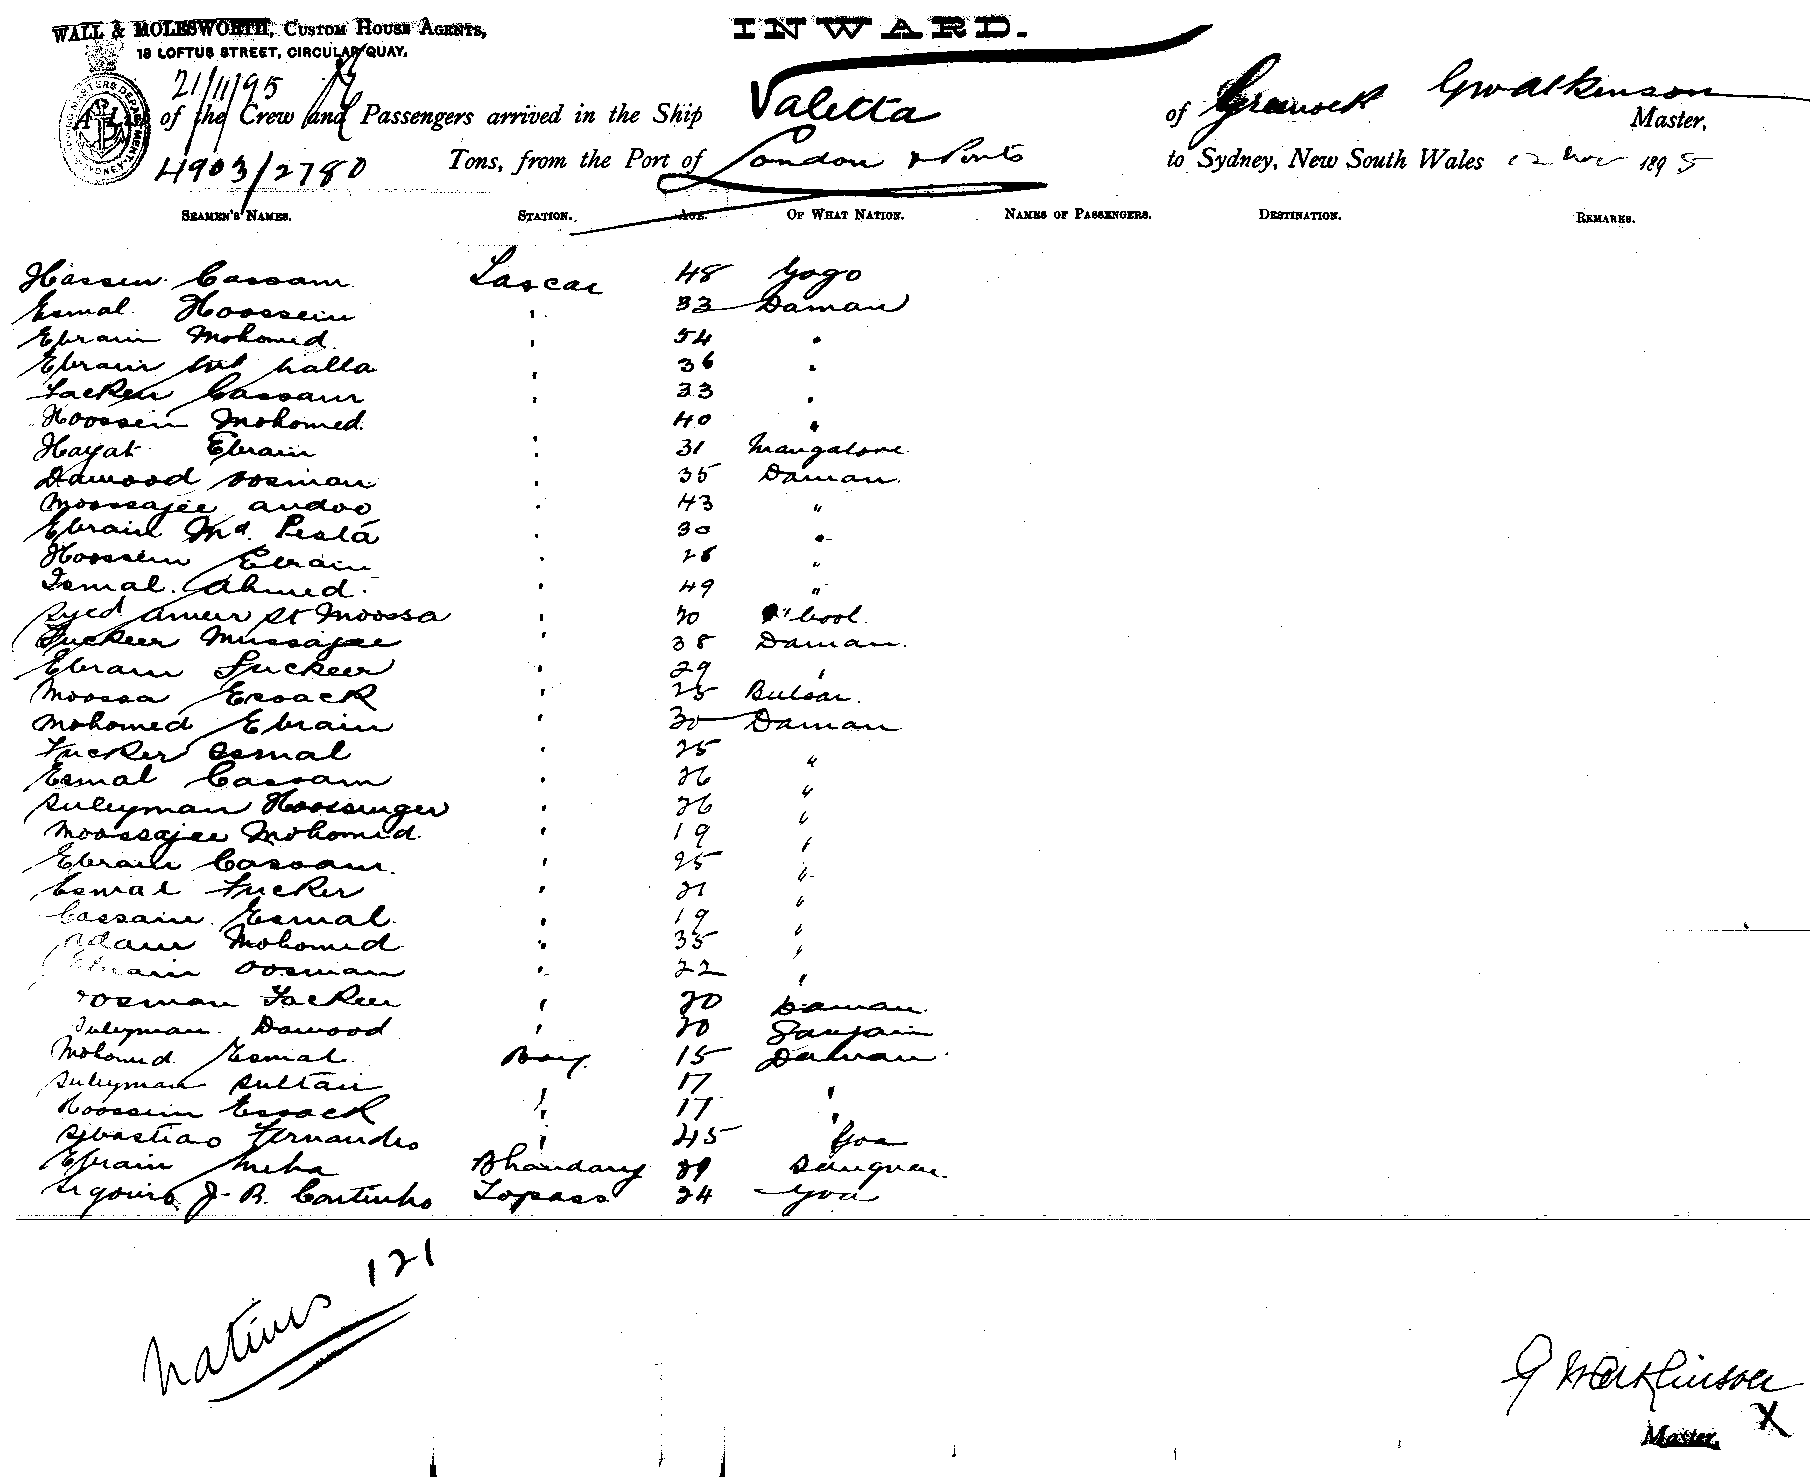 WALL & MOLESWORTH, CUSTOM HOUSE AGENTS,
18 LOFTUS STREET, CIRCULAR QUAY.
INWARD.
21/11/95
A List of the Crew and Passengers arrived in the Ship Valetta of Greenock G W Atkinson Master,
4903/2780 Tons, from the Port of London & Ports to Sydney, New South Wales 12 Nov 1895
SEAMEN'S NAMES. STATION. AGE. OF WHAT NATION. NAMES OF PASSENGERS. DESTINATION. REMARKS.
Hassen Cassam Lascar 48 Gogo
Esmal Hoossein " 33 Daman
Ebraim Mohomed " 54 "
Ebraim halla " 36 "
Fackeer Cassam " 33 "
Hoossein Mohomed " 40 "
Hayat Ebraim " 31 Mangalore
Dawood Oosman " 35 Daman
Moossajee andoo " 43 "
Ebraim Md. Pesta " 30 "
Hoossein Ebraim " 28 "
Esmal Ahmed " 49 "
Syed Ameer St Moossa " 30 bool
Fuckeer Mussajee " 38 Daman
Ebraim Fuckeer " 29 "
Moossa Essack " 25 Bulsar
Mohomed Ebraim " 30 Daman
Fucker Esmal " 25 "
Esmal Cassam " 26 "
Suleyman Hoossenger " 26 "
Moossajee Mohomed " 19 "
Ebraim Cassam " 25 "
Esmal Fucker " 21 "
Cassam Esmal " 19 "
Adam Mohomed " 35 "
Ebraim Oosman " 22 "
Oosman Fackeer " 30 Daman
Suleyman Dawood " 30 Sanjain
Mohomed Esmal Boy 15 Daman
Suleyman Sultan " 17 "
Hoossein Essack " 17 "
Sebastiao Fernandes " 45 Goa
Ebraim Bhandary 39
J. R. Coutinho Topass 24 Goa
Natives 121
G W Atkinson
X
Master.